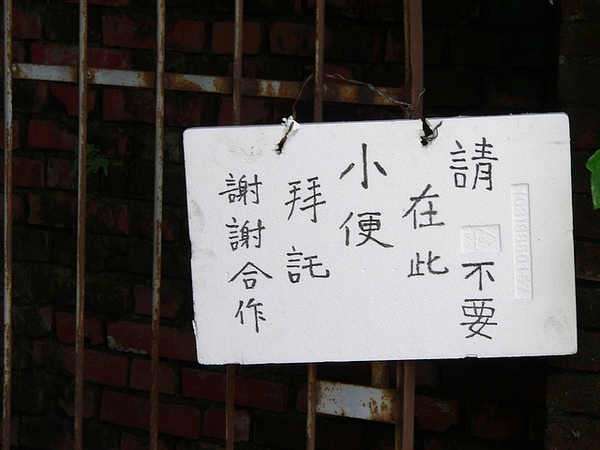 請不要
在此
小便
拜託
謝謝合作